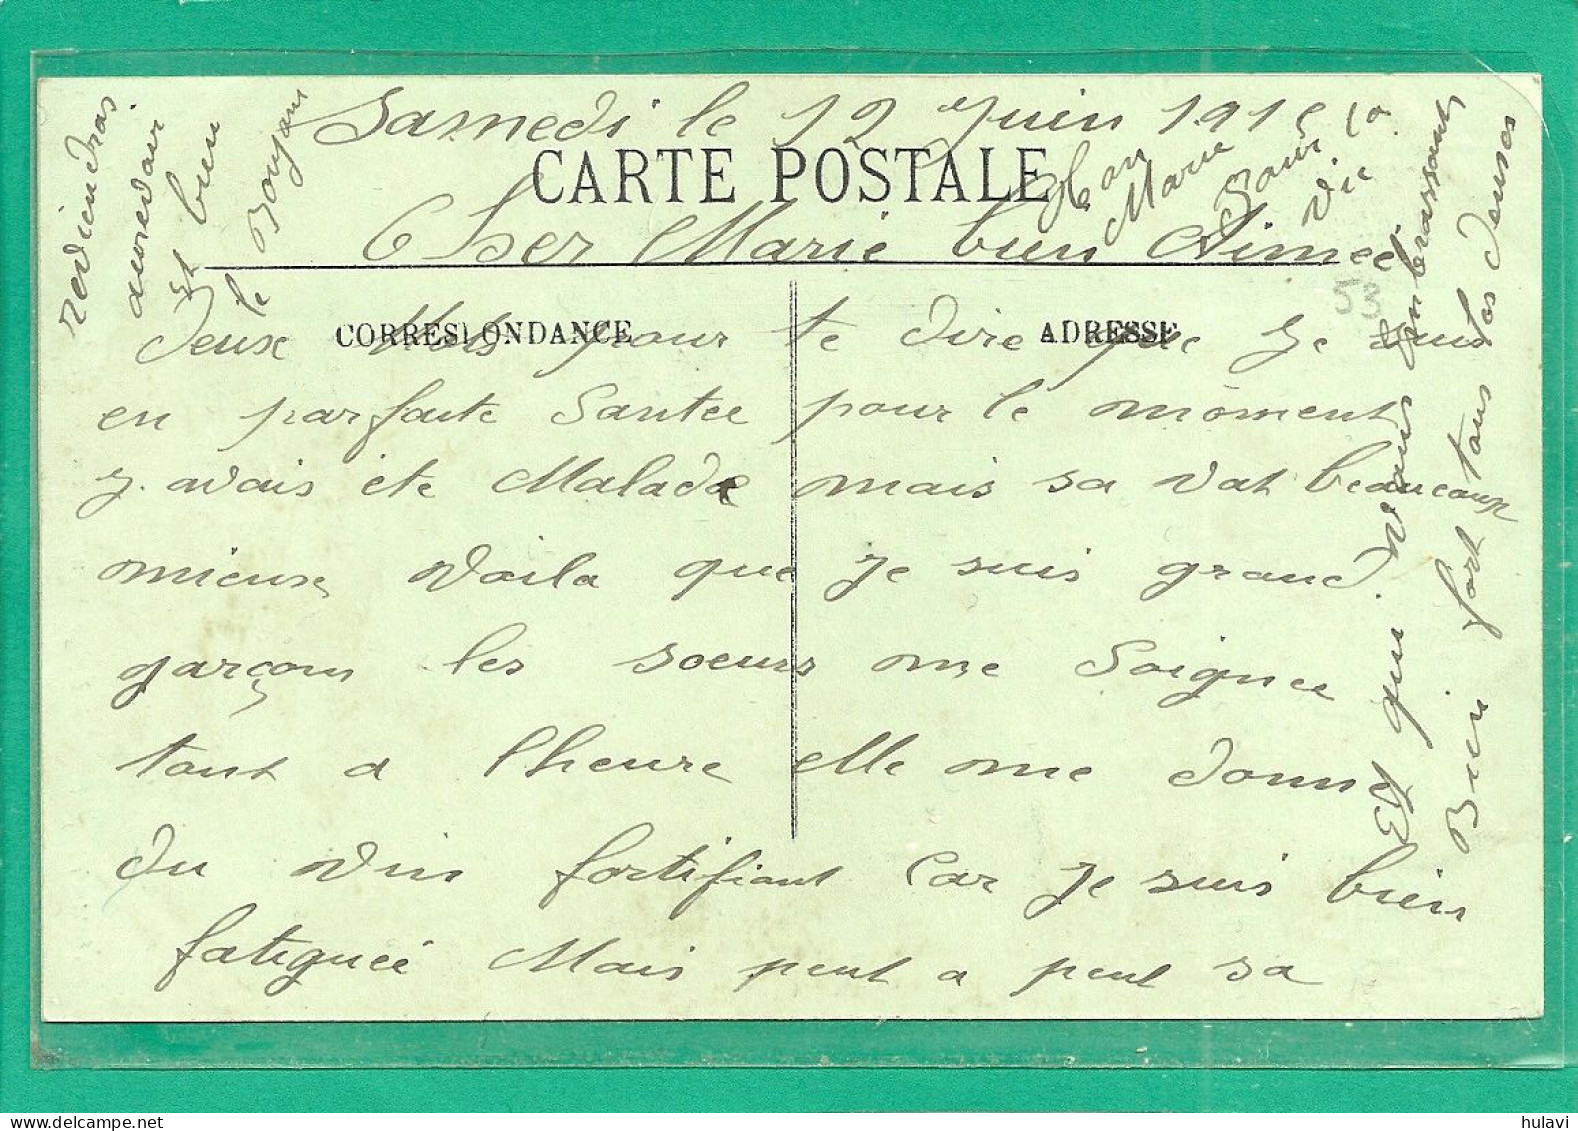 Samedi le 12 Juin 1915
CARTE POSTALE
Cher Marie bien Aimeé
53
CORRESPONDANCE
ADRESSE
deux Mots pour te dire que Je suis
en parfaite Santee pour le moment
J. avais éte Malade mais sa vat beaucoup
mieux voila que Je suis grand.
garçon les soeurs me Soigne
tout a l'heure elle me donne
du vin fortifiant Car Je suis bien
fatigueé Mais peut a peut sa
reviendras.
aurevoir
Et bien
le Bonjour
Et qui vous Embrassent
Bien fort tous les deuses
ton
Marie
Pour la
vie
hulavi